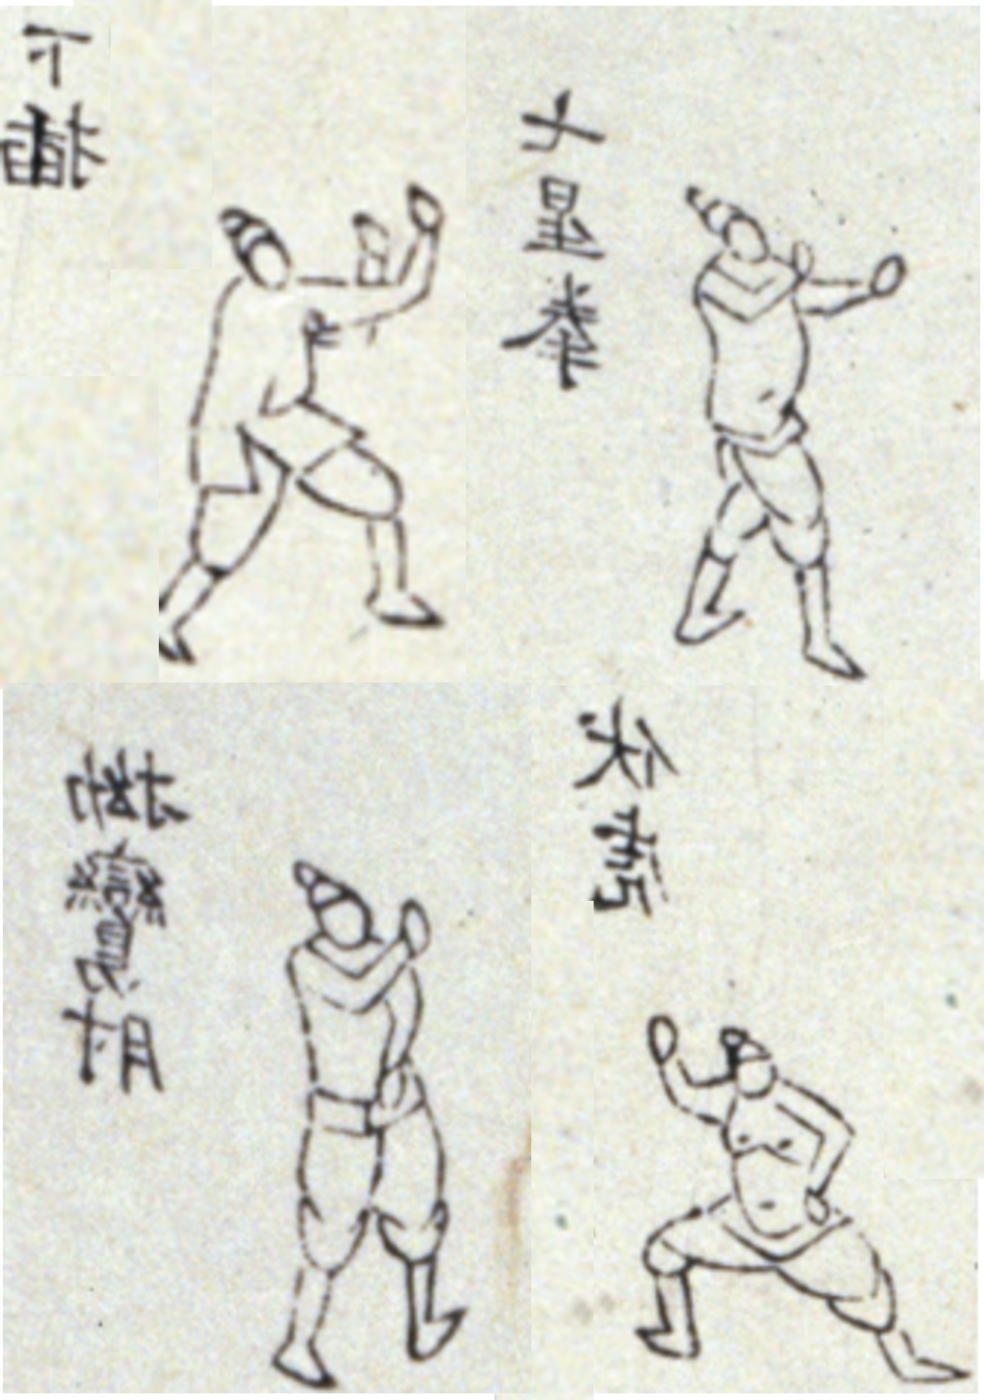 下插
七星拳
鸞肘
伏虎